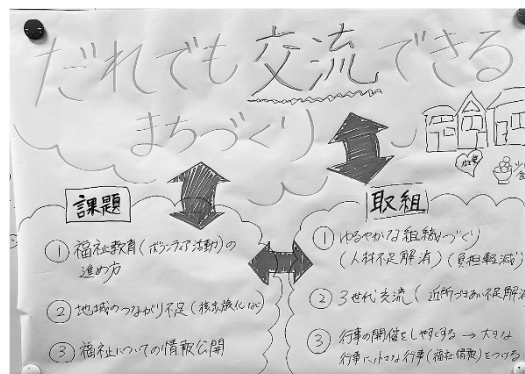 だれでも交流できる
まちづくり
課題
① 福祉教育(ボランティア活動)の
進め方
② 地域のつながり不足(核家族化など)
③ 福祉についての情報公開
取組
① ゆるやかな組織づくり
(人材不足解消)(負担軽減)
② 3世代交流(近所づきあい不足解消
③ 行事の開催をしやすくする → 大きな
行事に小さな行事(福祉情報)をつける